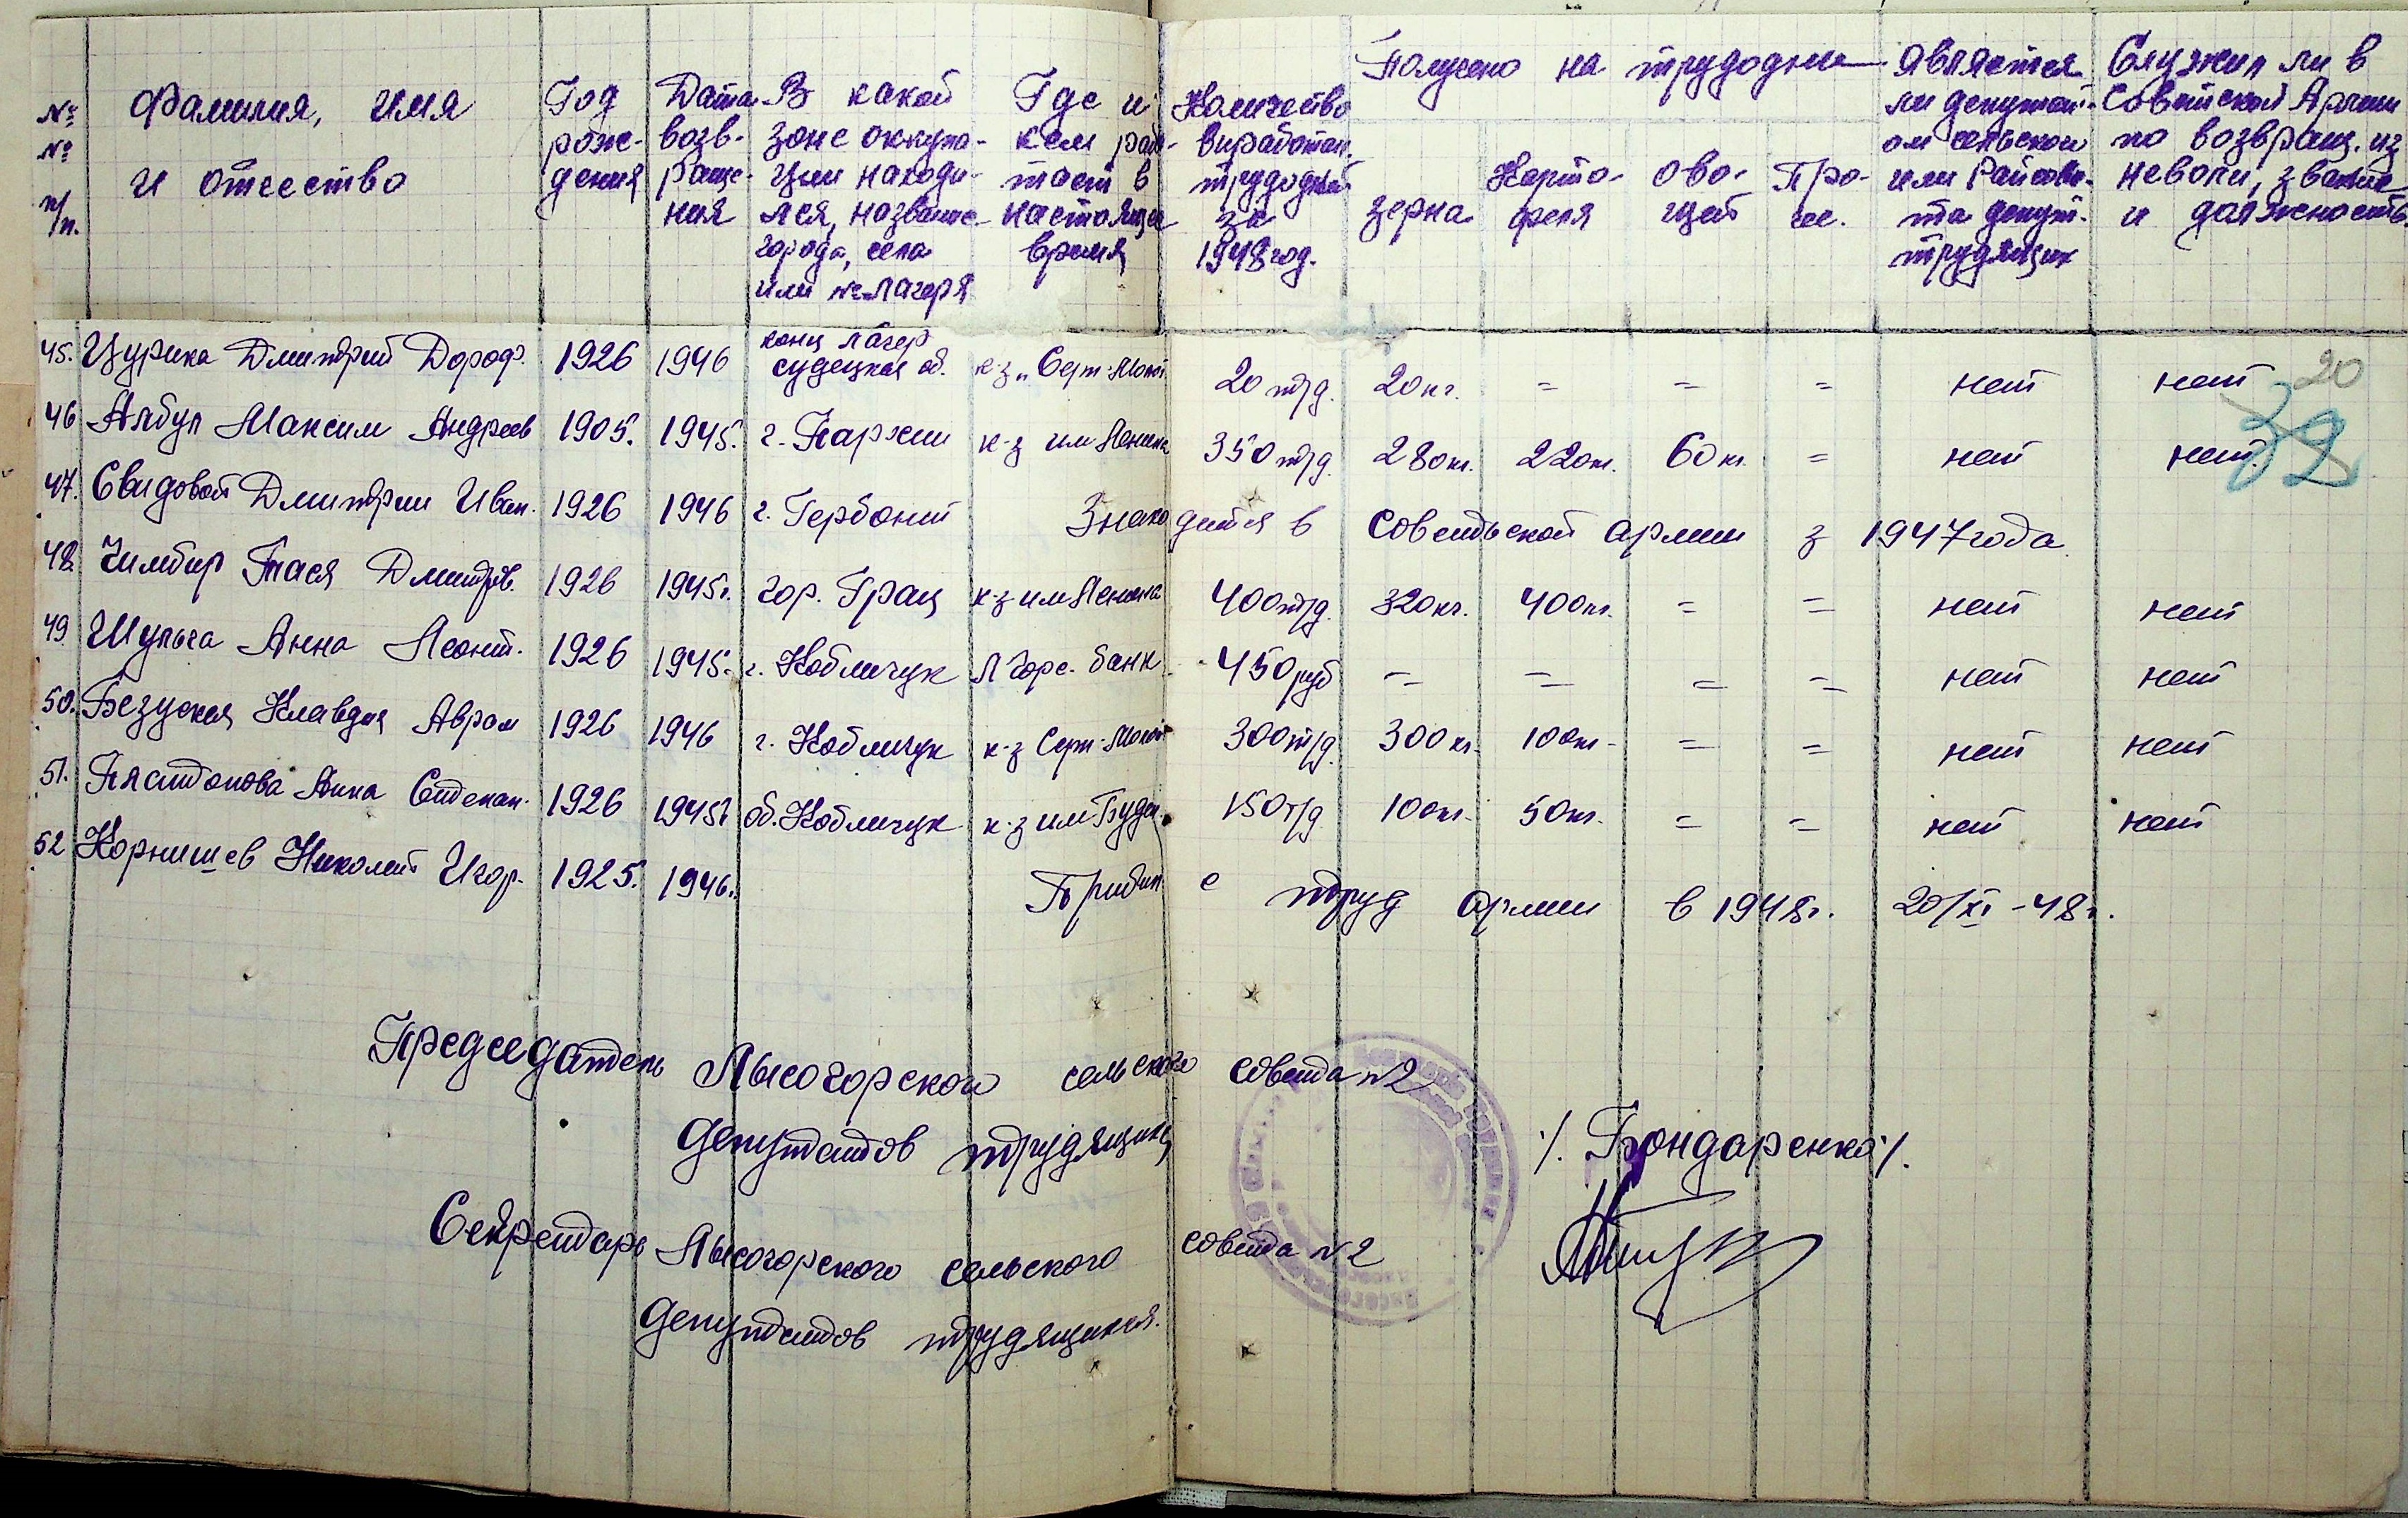 № № п/п.
Фамилия, имя и отчество
Год рожде- дения
Дата возв- раще- ния
В какой зоне оккупа- ции находи- лся, название города, села или № лагеря
Где и кем рабо- тает в настоящее время
Количество выработан. трудодней за 1948 год.
Получено на трудодни
зерна
Карто- феля
ово- щей
Про- чее.
является ли депутат- ом сельского или Райсове- та депут. трудящих
Служил ли в Советской Армии по возвращ. из неволи, звание и должность.
20
32
45. Цурика Дмитрий Дороф. 1926 1946 конц лагер судецкая об. к-з „Серп-Молот 20 т/д. 20 кг. = = = нет нет
46 Албул Максим Андреев 1905. 1945. г. Пархим к-з им Ленина 350 т/д. 280 кг. 220 кг. 60 кг. = нет нет
47. Свидовой Дмитрии Иван. 1926 1946 г. Гербоний Знаходится в совецьской армии з 1947 года
48 Чимбир Тася Дмитров. 1926 1945г. гор. Грац к-з им Ленина 400 т/д. 320 кг. 400 кг. = = нет нет
49 Шульга Анна Леонт. 1926 1945. г. Кобличук Л Горс. банк 450 руб = = = = нет нет
50. Безуская Клавдия Аврам 1926 1946 г. Кобличук к-з Серп-Молот 300 т/д. 300 кг. 100 кг. = = нет нет
51. Платонова Анна Степан. 1926 1945г об. Кобличук к-з им Буден. 150 т/д 100 кг. 50 кг. = = нет нет
52 Корнишев Николай Игор. 1925. 1946. Прибил с труд армии в 1948г. 20/XI-48г.
Председатель Лысогорского сельского совета №2
депутатов трудящихся
/. Бондаренко ./.
Секретарь Лысогорского сельского совета №2
депутатов трудящихся.